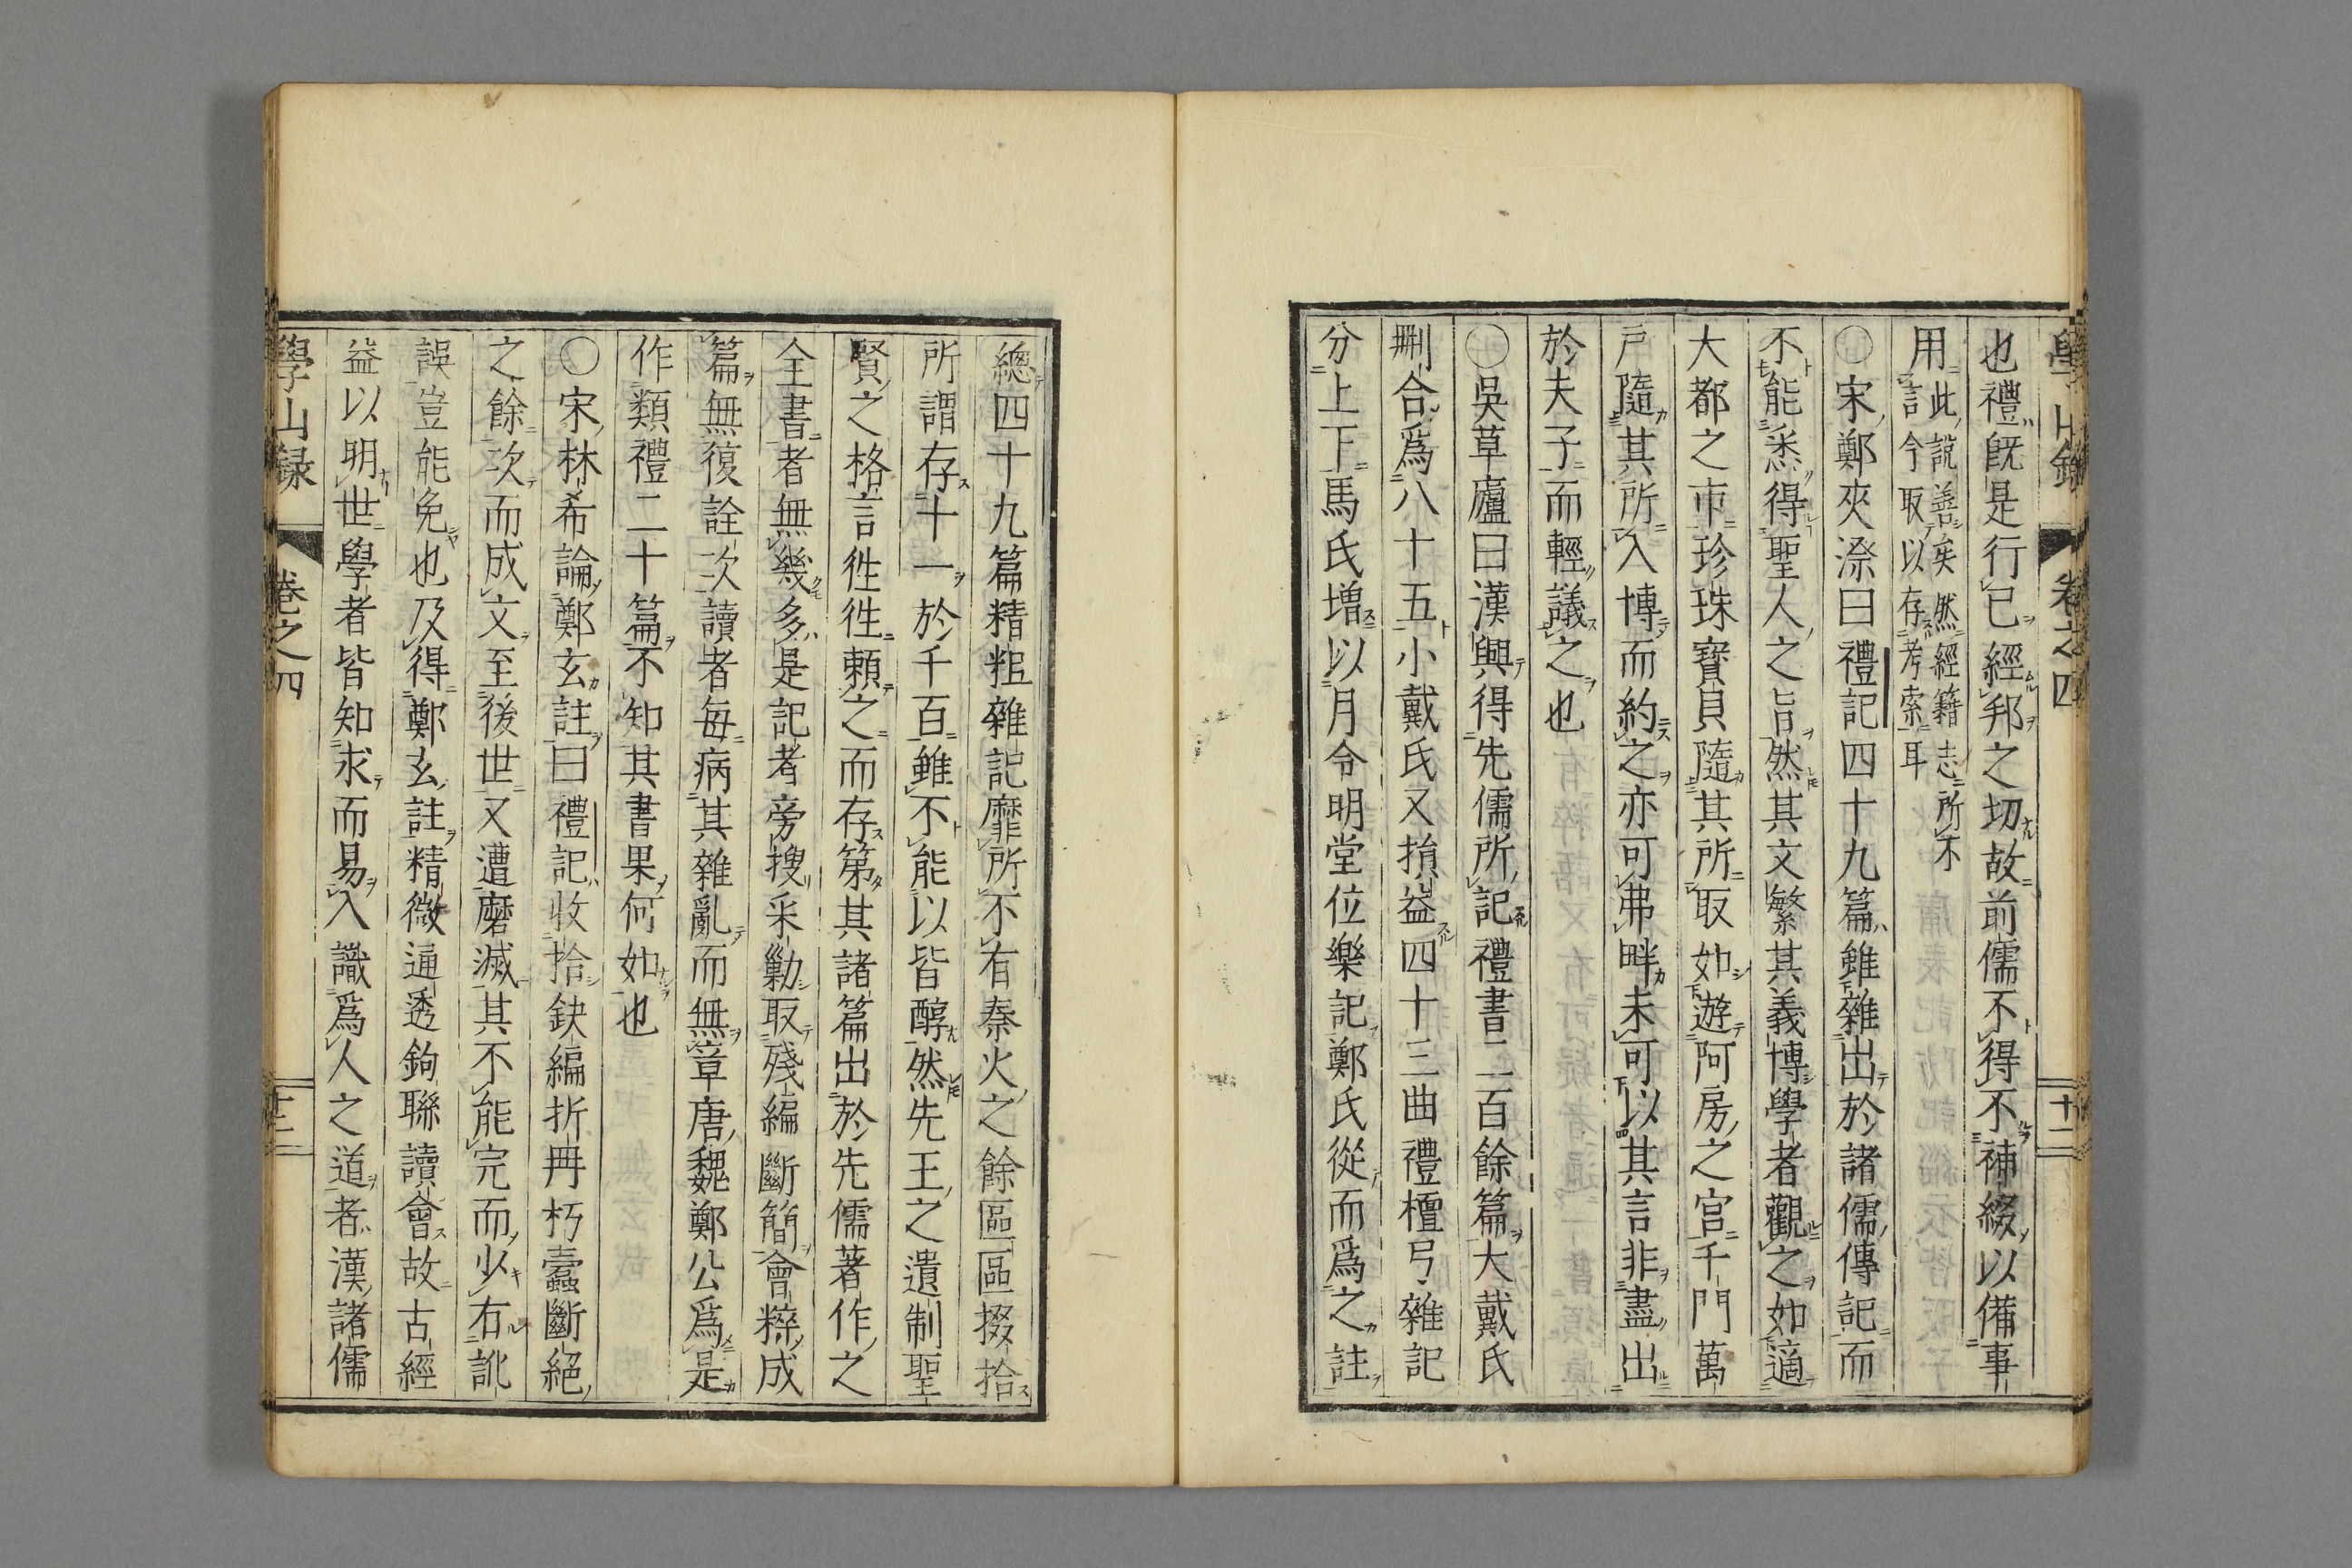 學山錄 卷之四 十二
也禮既是行已經邦之切故前儒不得不補綴以備事
用此說善矣然經籍志所不
言今取以存考索耳
○宋鄭夾漈曰禮記四十九篇雖雜出於諸儒傳記而
不能悉得聖人之旨然其文繁其義博學者觀之如適
大都之市珍珠寶貝隨其所取如遊阿房之宮千門萬
戶隨其所入博而約之亦可弗畔未可以其言非盡出
於夫子而輕議之也
○吳草廬曰漢興得先儒所記禮書二百餘篇大戴氏
刪合爲八十五小戴氏又損益四十三曲禮檀弓雜記
分上下馬氏增以月令明堂位樂記鄭氏從而爲之註
總四十九篇精粗雜記靡所不有秦火之餘區區掇拾
所謂存十一於千百雖不能以皆醇然先王之遺制聖
賢之格言徃徃頼之而存第其諸篇出於先儒著作之
全書者無幾多是記者旁搜采勦取殘編斷簡會粹成
篇無復詮次讀者每病其雜亂而無章唐魏鄭公爲是
作類禮二十篇不知其書果何如也
○宋林希論鄭玄註曰禮記收拾鈌編折冊朽蠧斷絕
之餘次而成文至後世又遭磨滅其不能完而少右訛
誤豈能免也及得鄭玄註精微通透鉤聯讀會故古經
益以明世學者皆知求而易入識爲人之道者漢諸儒
學山錄 卷之四 十二